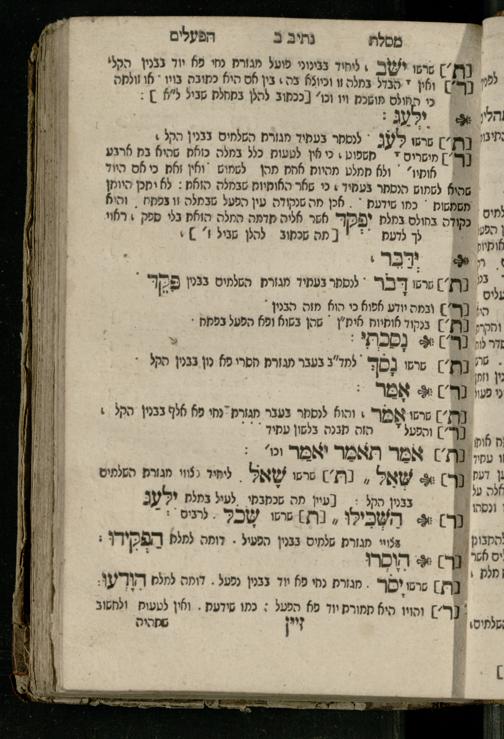 מסלת נתיב ב הפעלים
[ת׳] שרשו יָשַׁב ׃ ליחיד בבינוני פועל מגזרת נחי פא יוד בבנין הקל׃
[ר׳] ואין הבדל במלה זו וכיוצא בה ׃ בין אם היא כתובה בויו ׳ או זולתה
כי החולם מושכת ויו וכו׳ [ככתוב להלן במחלת שביל ל״א] ׃
יִלְעַג ׃
[ת׳] שרשו לָעַג ׳ לנסתר בעתיד מגזרת השלמים בבנין הקל ׃
[ר׳] מישרים תשפוט ׃ כי אין לטעות כלל במלה כזאת שהיא בת ארבע
אותיו׳ ׳ ולא תמלט מהיות אחת מהן לשמוש ׳ ואין זאת כי אם היוד
שהיא לשמוש הנסתר בעתיד ׃ כי שאר האותיות שבמלה הזאת ׃ לא יתכן היותן
משמשות ׃ כמו שידעת ׳ אכן מה שנקודה עין הפעל שבמלה זו בפתח ׳ והיא
נקודה בחולם במלת יִפְקֹד אשר אליה תדמה המלה הזאת בלי ספק ׃ ראוי
לך לדעת [מה שכתוב להלן שביל ז׳] ׃
יְדַבֵּר ׃
[ת׳] שרשו דָּבַר ׳ לנסתר בעתיד מגזרת השלמים בבנין פִּקֵּד
[ר׳] ובמה יודע אפוא כי הוא מזה הבנין ׳
[ת׳] בנקוד אותיות אית״ן ׳ שהן בשוא ופא הפעל בפתח ׳
[ר׳] נָסַכְתִּי ׃
[ת׳] שרשו נָסַךְ ׳ למד״ב בעבר מגזרת חסרי פא נון בבנין הקל
[ר׳] אָמַר ׃
[ת׳] שרשו אָמַר ׃ והוא לנסתר בעבר מגזרת נחי פא אלף בבנין הקל ׃
[ר׳] והפעל הזה תבנה בלשון עתיד ׳
[ת׳] אֹמַר תֹּאמַר יֹאמַר וכו׳ ׃
[ר׳] שְׁאַל ״ [ת׳] שרשו שָׁאַל ׳ ליחיד צווי מגזרת השלמים
בבנין הקל ׃ [עיין מה שכתבתי לעיל במלת יִלְעַג
[ר׳] הַשְׂכִּילוּ ״ [ת׳] שרשו שָׂכַל ׳ לרבים ׃
צלווי מגזרת שלמים בבנין הפעיל ׳ דומה למלת הַפְקִידוּ ׃
[ר׳] הִוָּסְרוּ
[ת׳] שרשו יָסַר ׳ מגזרת נחי פא יוד בבנין נפעל ׳ דומה למלת הִוָּדְעוּ ׃
[ר׳] והויו היא תמורת יוד פא הפעל ׃ כמו שידעת ׳ ואין לטעות ולחשוב
זיין שתהיה